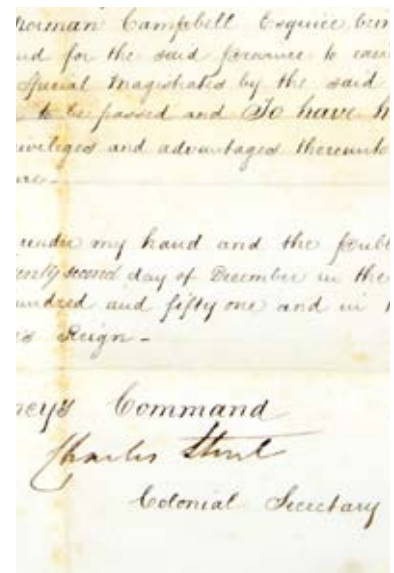 Norman Campbell Esquire bein
and for the said Province to exer
Special Magistrates by the said
to be passed and To have h
ivileges and advantages thereunto
under my hand and the Publ
enty second day of December in the
undred and fifty one and in
Reign -
ncy's Command
Charles Sturt
Colonial Secretary